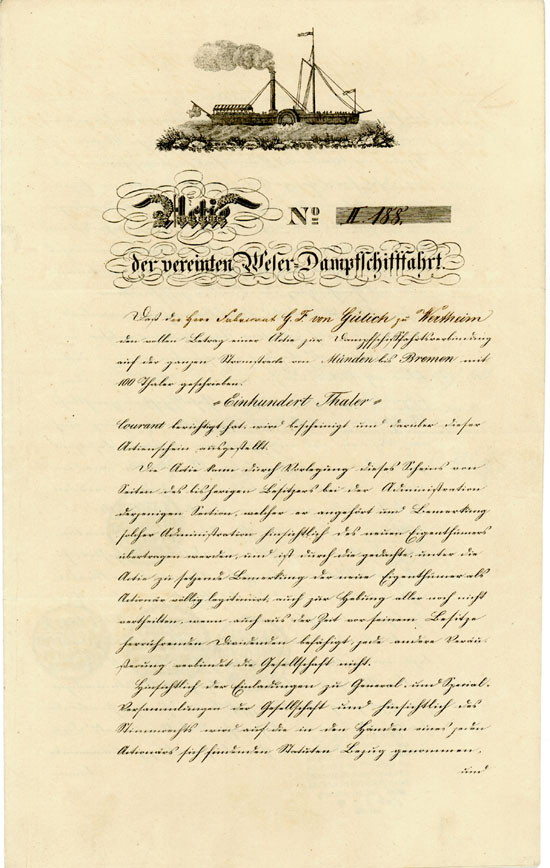 Actie No II 188.
der vereinten Weser=Dampfschifffahrt.
Daß der Herr Fabricant G. F. von Gülich zu Wertheim
den vollen Betrag einer Actie zur Dampfschifffahrtsverbindung
auf der ganzen Stromstrecke von Münden bis Bremen mit
100 Thaler geschrieben:
"Einhundert Thaler"
Courant berichtigt hat, wird bescheinigt und darüber dieser
Actienschein ausgestellt.
Die Actie kann durch Vorlegung dieses Scheins von
Seiten des bisherigen Besitzers bei der Administration
derjenigen Section, welcher er angehört und Bemerkung
solcher Administration hinsichtlich des neuen Eigenthümers
übertragen werden, und ist durch die gedachte, unter die
Actie zu setzende Bemerkung der neue Eigenthümer als
Actionär völlig legitimirt, auch zur Hebung aller noch nicht
vertheilten, wenn auch aus der Zeit vor seinem Besitze
herrührenden Dividenden befähigt, jede andere Veräu-
ßerung verbindet die Gesellschaft nicht.
Hinsichtlich der Einladungen zu General- und Special-
Versammlungen der Gesellschaft und hinsichtlich des
Stimmrechts wird auf die in den Händen eines jeden
Actionärs sich findenden Statuten Bezug genommen,
und